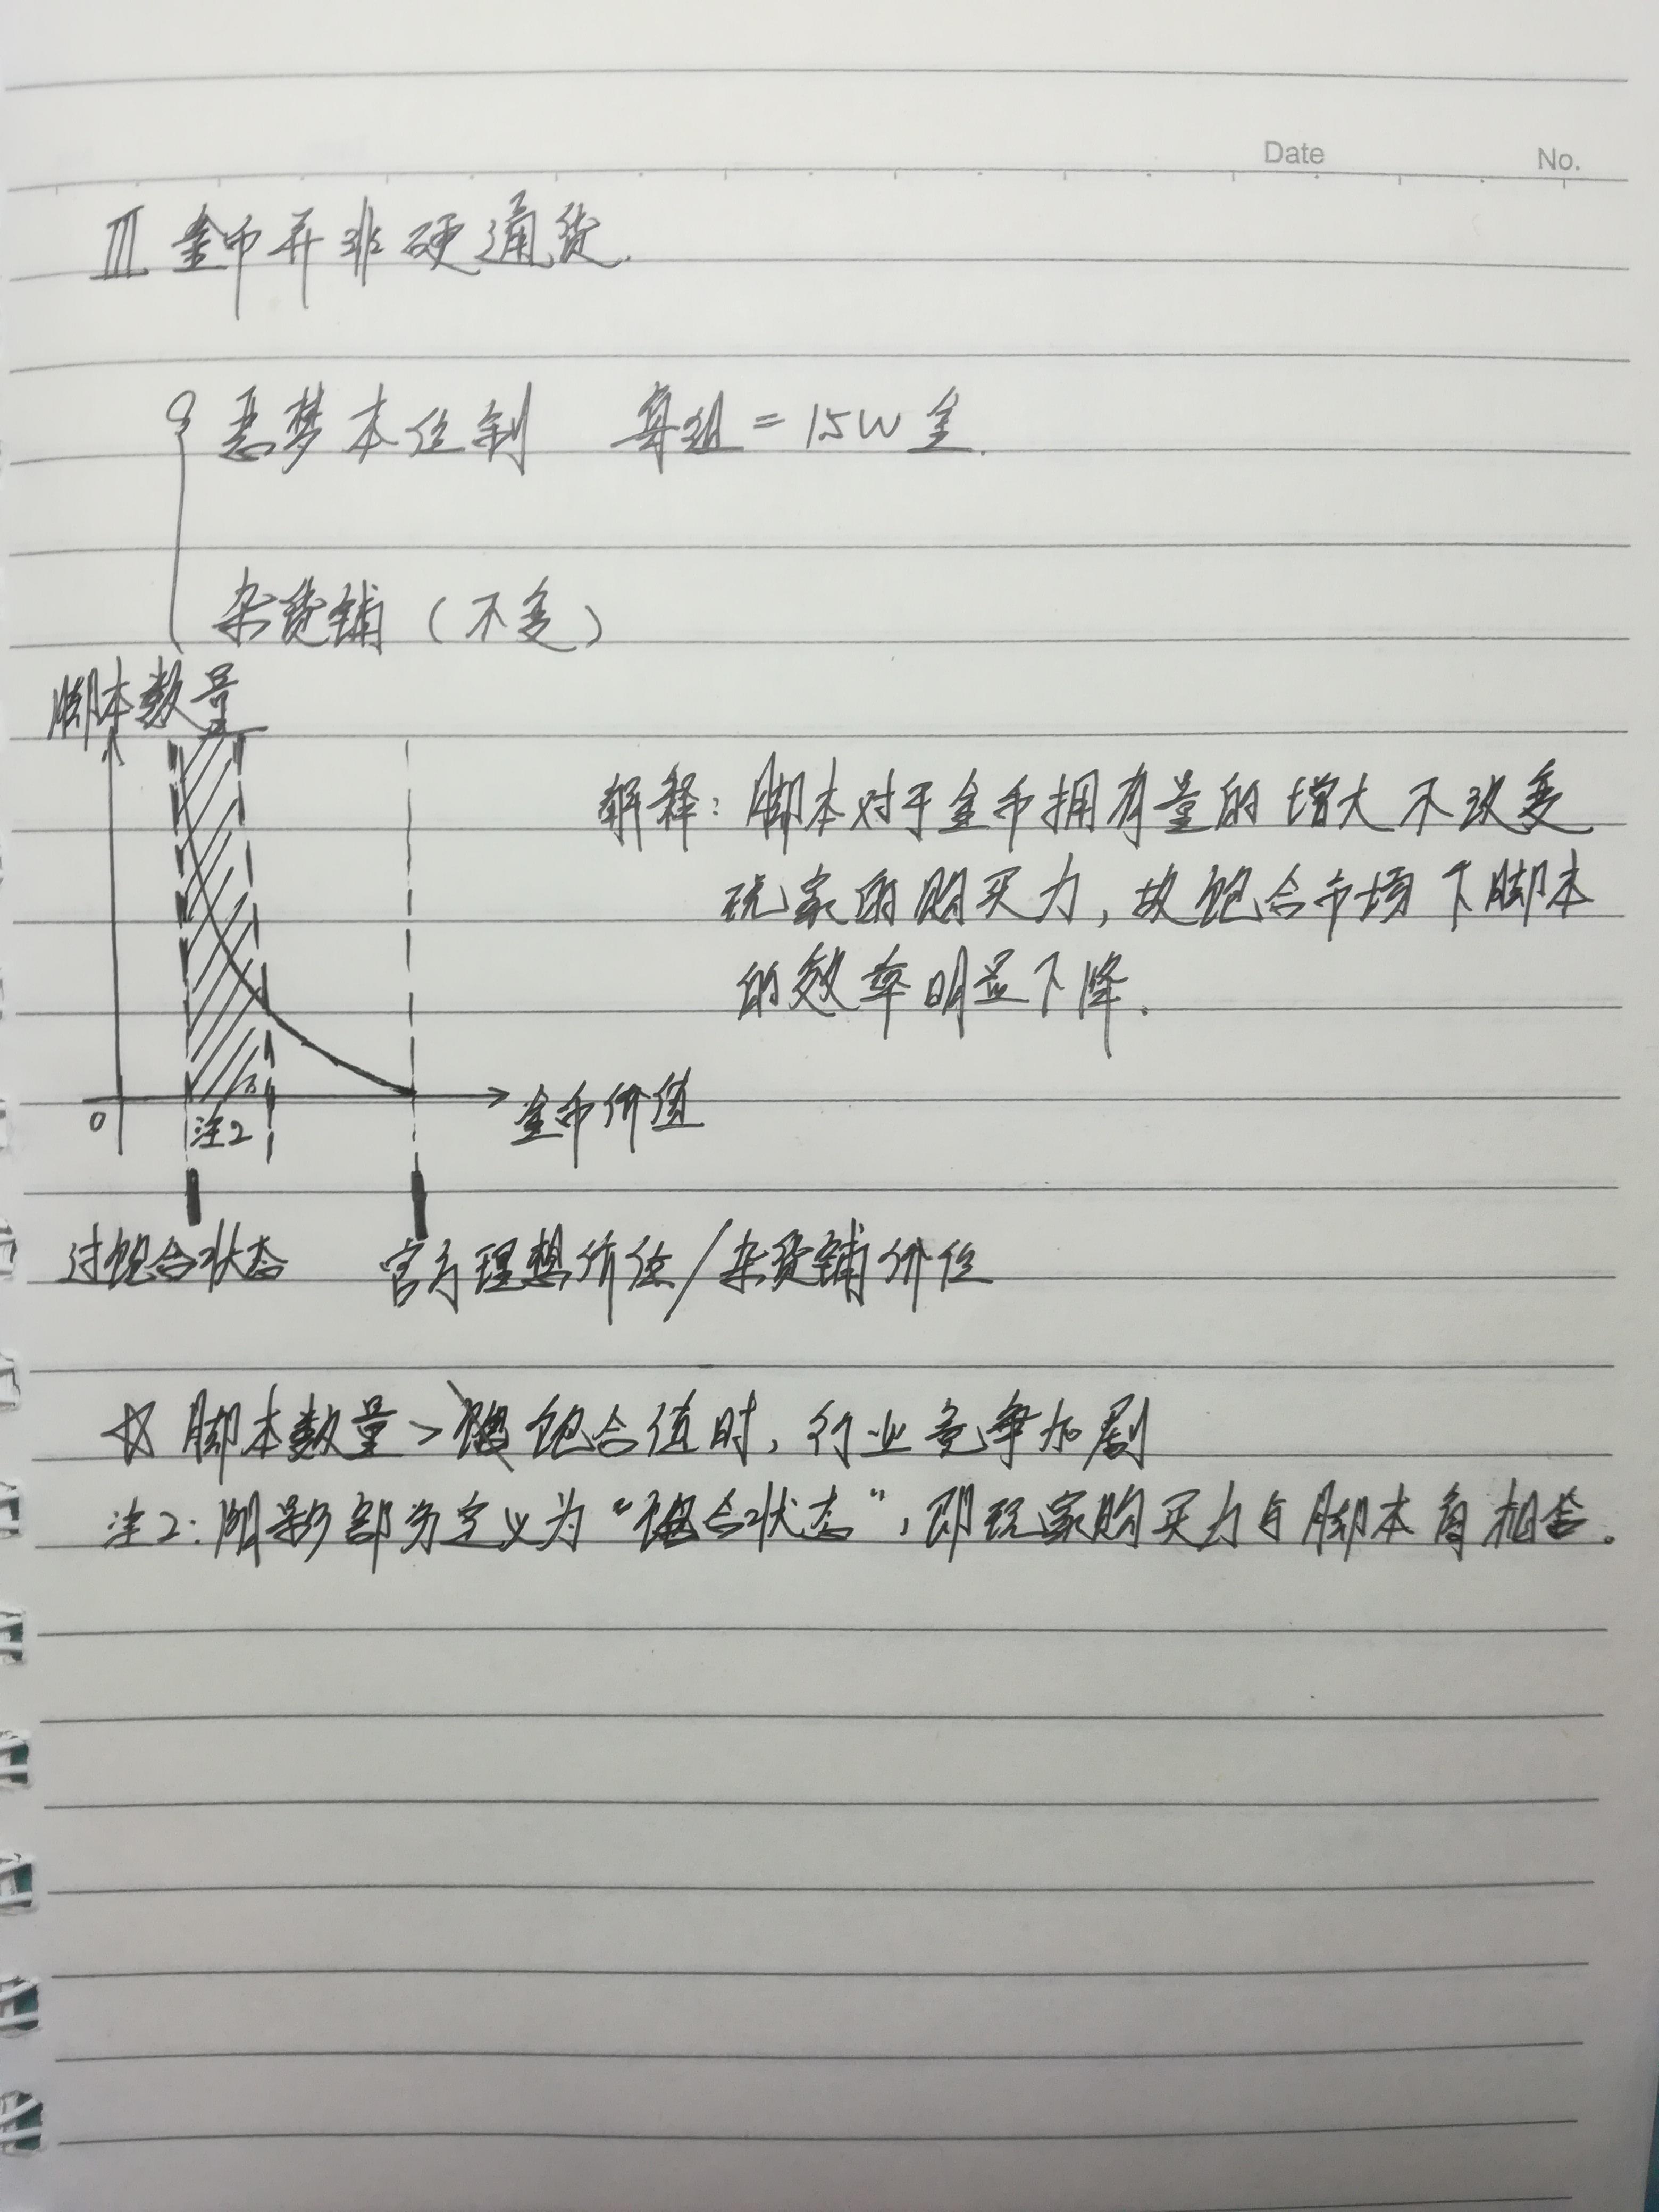 Date No.
Ⅲ 金币并非硬通货.
恶梦本位制 每组=15W金.
杂货铺(不变)
脚本数量
解释:脚本对于金币拥有量的增大不改变
玩家的购买力,故饱合市场下脚本
的效率明显下降.
0
注2
金币价值
过饱合状态 官方理想价位/杂货铺价位
☆ 脚本数量>饱合值时,行业竞争加剧
注2:阴影部分定义为“饱合状态”,即玩家购买力与脚本相